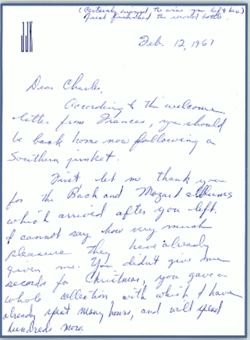 (Certainly enjoyed the wine you left here)
Just finished the second bottle.
Feb. 12, 1967
Dear Charles,
According to the welcome
letter from Frances, you should
be back home now following a
Southern junket.
First let me thank you
for the Bach and Mozart albums
which arrived after you left.
I cannot say how very much
pleasure they have already
given me. You didn't give me
records for Christmas, you gave a
whole collection, with which I have
already spent many hours, and will spend
hundreds more.